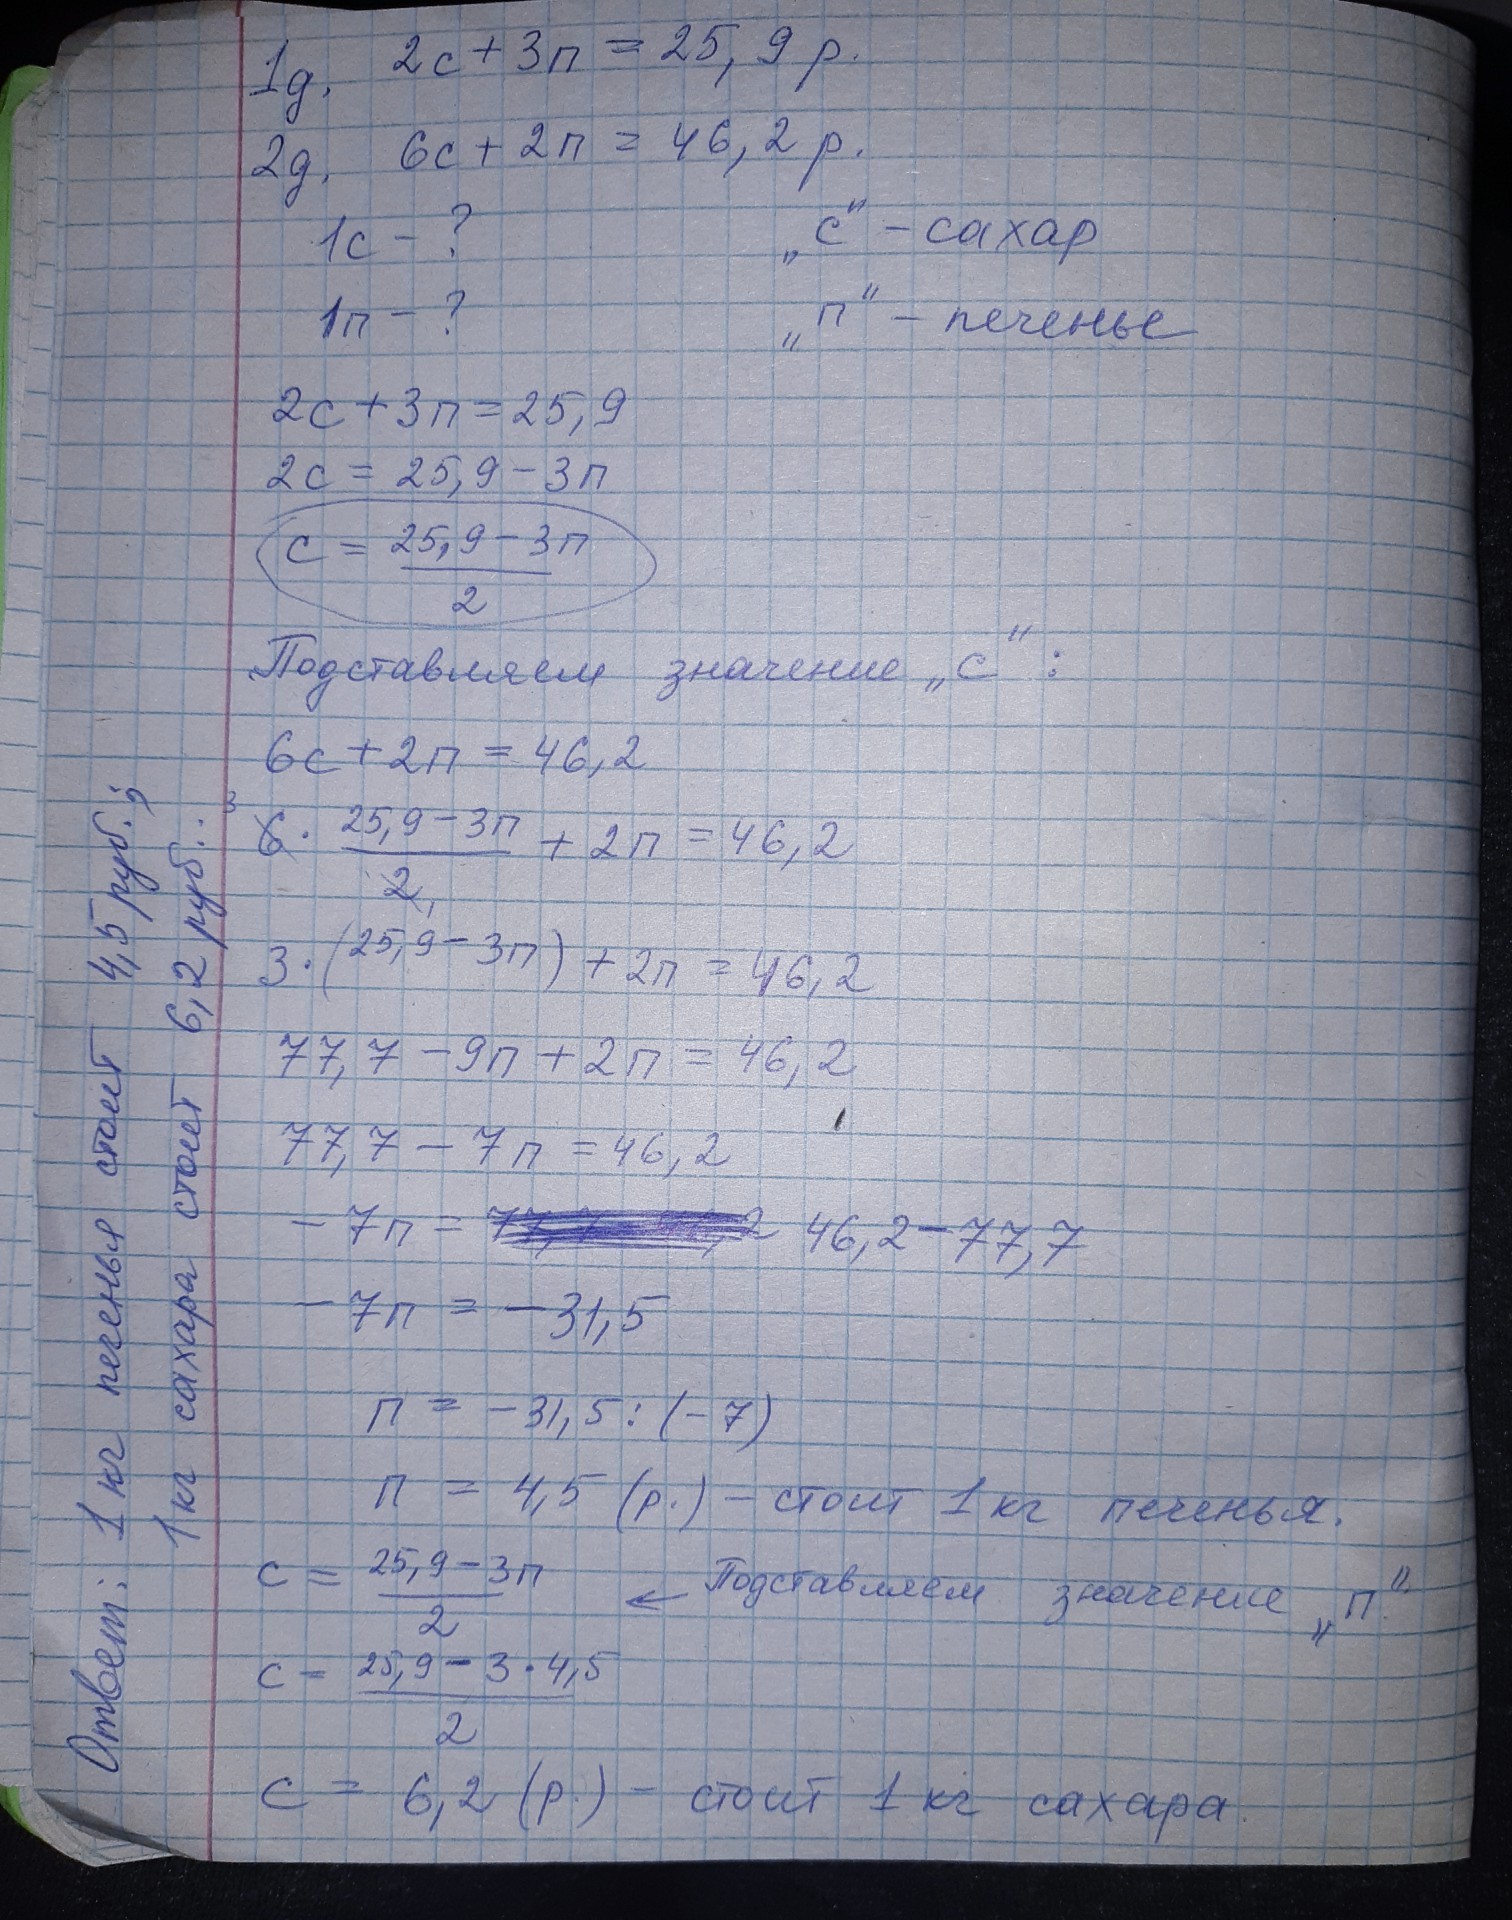 1д. 2с + 3п = 25,9 р.
2д. 6с + 2п = 46,2 р.
1с - ? „с“ - сахар
1п - ? „п“ - печенье
2с + 3п = 25,9
2с = 25,9 - 3п
с = (25,9 - 3п)/2
Подставляем значение „с“ :
6с + 2п = 46,2
6³ · (25,9 - 3п)/2₁ + 2п = 46,2
3 · (25,9 - 3п) + 2п = 46,2
77,7 - 9п + 2п = 46,2
77,7 - 7п = 46,2
- 7п = 46,2 - 77,7
- 7п = - 31,5
п = - 31,5 : (- 7)
п = 4,5 (р.) - стоит 1 кг печенья.
с = (25,9 - 3п)/2 ← Подставляем значение „п“.
с = (25,9 - 3 · 4,5)/2
с = 6,2 (р.) - стоит 1 кг сахара.
Ответ: 1 кг печенья стоит 4,5 руб.;
1 кг сахара стоит 6,2 руб..